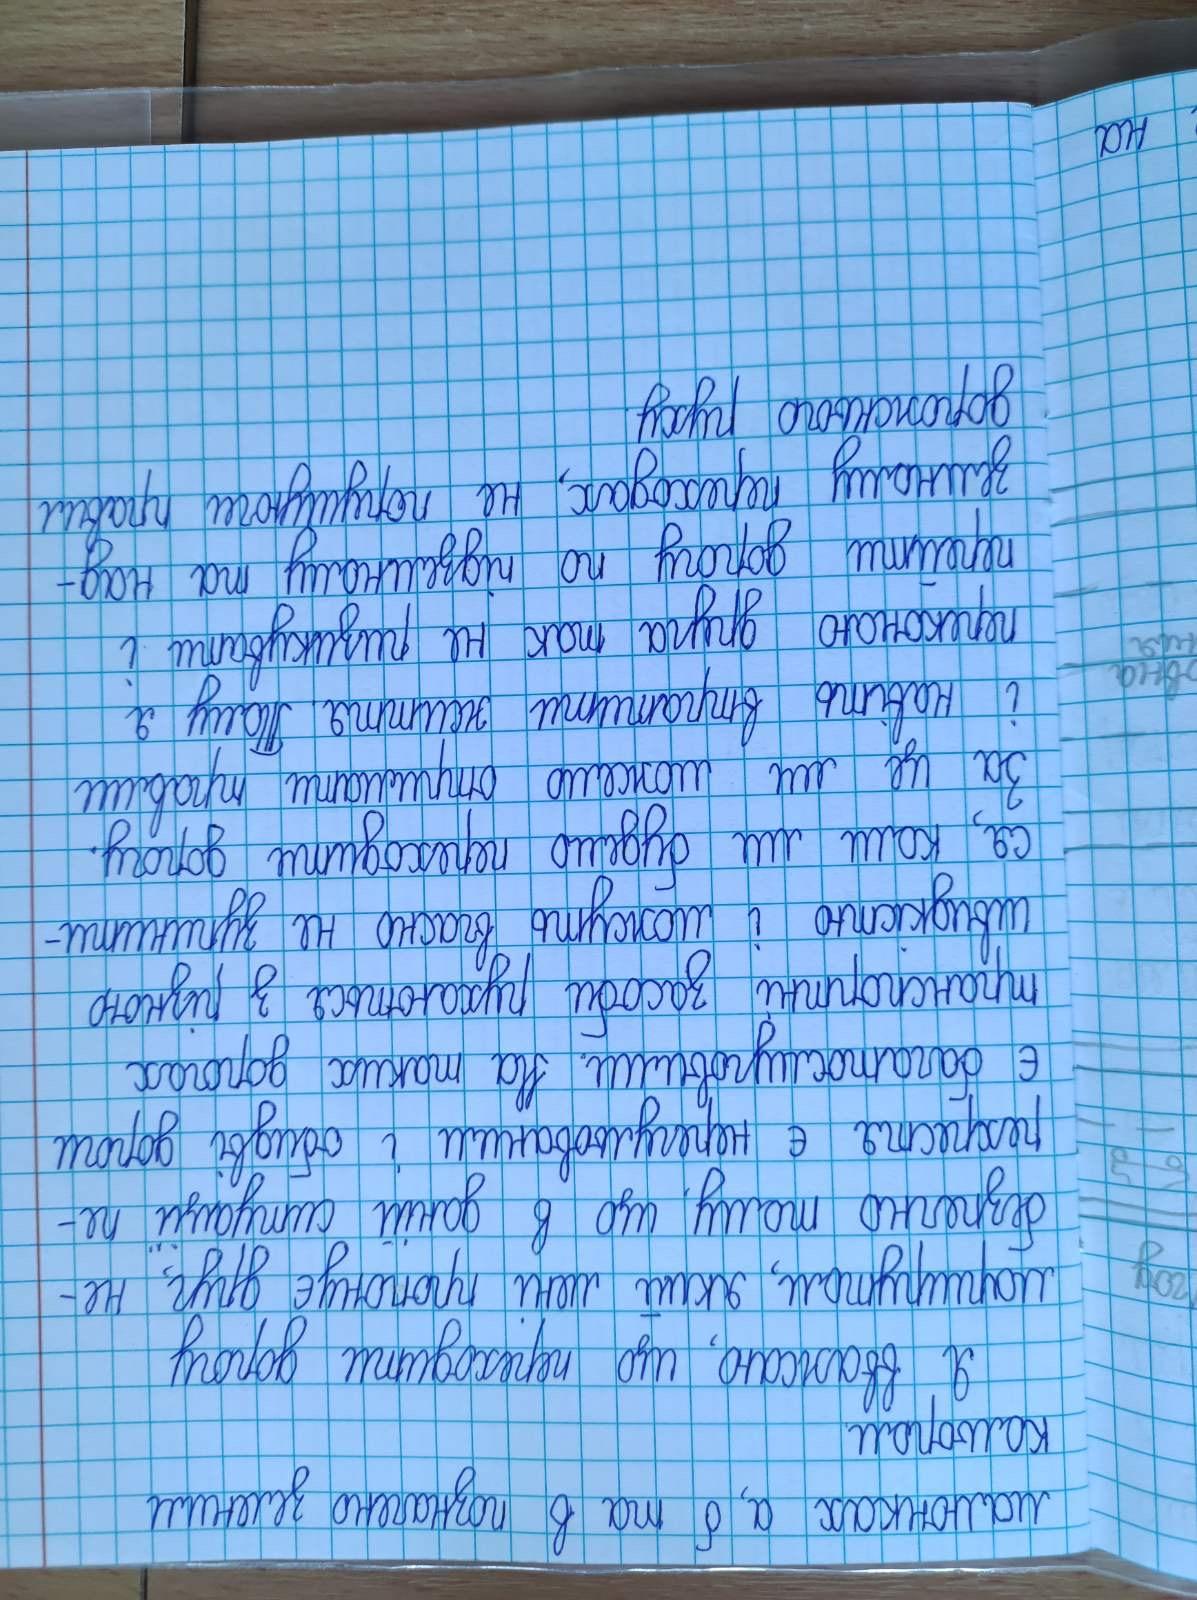 малюнках а, б та в позначено зеленим
кольором.
Я вважаю, що переходити дорогу
маршрутом, який мені пропонує друг, не-
безпечно тому, що в даній ситуації пе-
рехрестя є нерегульованим і обидві дороги
є багатосмуговими. На таких дорогах
транспортні засоби рухаються з різною
швидкістю і можуть вчасно не зупинити-
ся, коли ми будемо переходити дорогу.
За це ми можемо отримати травми
і навіть втратити життя. Тому я
переконаю друга так не ризикувати і
перейти дорогу по підземному та над-
земному переходах, не порушуючи правил
дорожнього руху
на